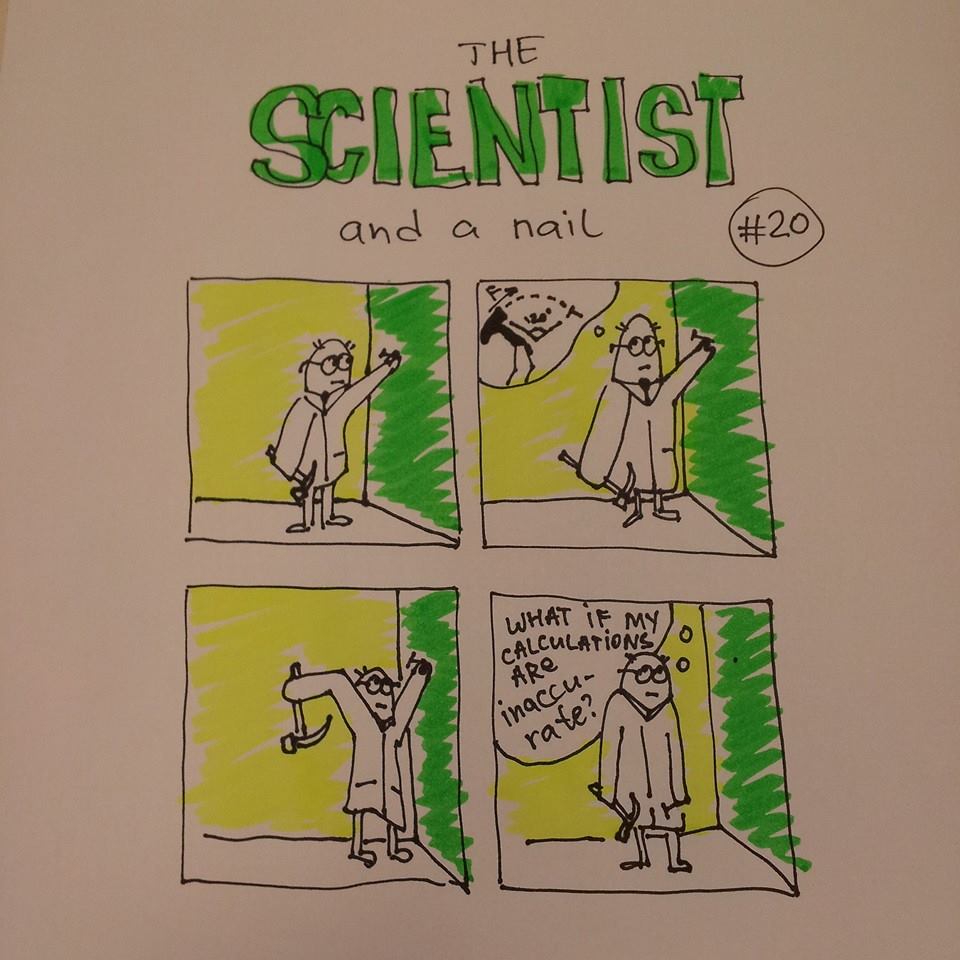 THE
SCIENTIST
and a nail
#20
F
120
WHAT iF MY
CALCULATIONS
ARE
inaccu-
rate?